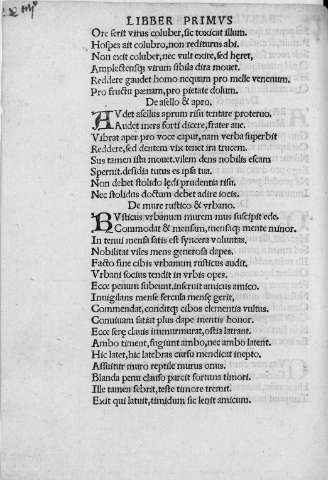 LIBBER PRIMVS
Ore ferit virus coluber, sic toxicat illum.
Hospes ait colubro, non rediturus abi.
Non exit coluber, nec vult exire, sed heret,
Amplectensq; virum sibila dira mouet.
Reddere gaudet homo nequam pro melle venenum.
Pro fructu pœnam, pro pietate dolum.
De asello & apro.
AVdet asellus aprum risu tentare proteruo.
Audet iners forti dicere, frater aue.
Vibrat aper pro voce caput, nam verba superbit
Reddere, sed dentem vix tenet ira trucem.
Sus tamen ista mouet. vilem dens nobilis escam
Spernit. desidia tutus es ipse tua.
Non debet stolido lędi prudentia risu,
Nec stolidus doctum debet adire iocis.
De mure rustico & vrbano.
RVsticus vrbanum murem mus suscipit ede.
Commodat & mensam, mensaq; mente minor.
In tenui mensa satis est syncera voluntas.
Nobilitat viles mens generosa dapes.
Facto fine cibis vrbanum rusticus audit,
Vrbani socius tendit in vrbis opes.
Ecce penum subeunt. inseruit amicus amico.
Inuigilans mense fercula mensę gerit,
Commendat, conditq; cibos clementia vultus.
Conuiuam satiat plus dape mentis honor.
Ecce serę clauis immurmurat, ostia latrant.
Ambo timent, fugiunt ambo, nec ambo latent.
Hic latet, hic latebras cursu mendicat inepto.
Assuitur muro reptile muris onus.
Blanda penu clauso parcit fortuna timori.
Ille tamen febrit, teste timore tremit.
Exit qui latuit, timidum sic lenit amicum.